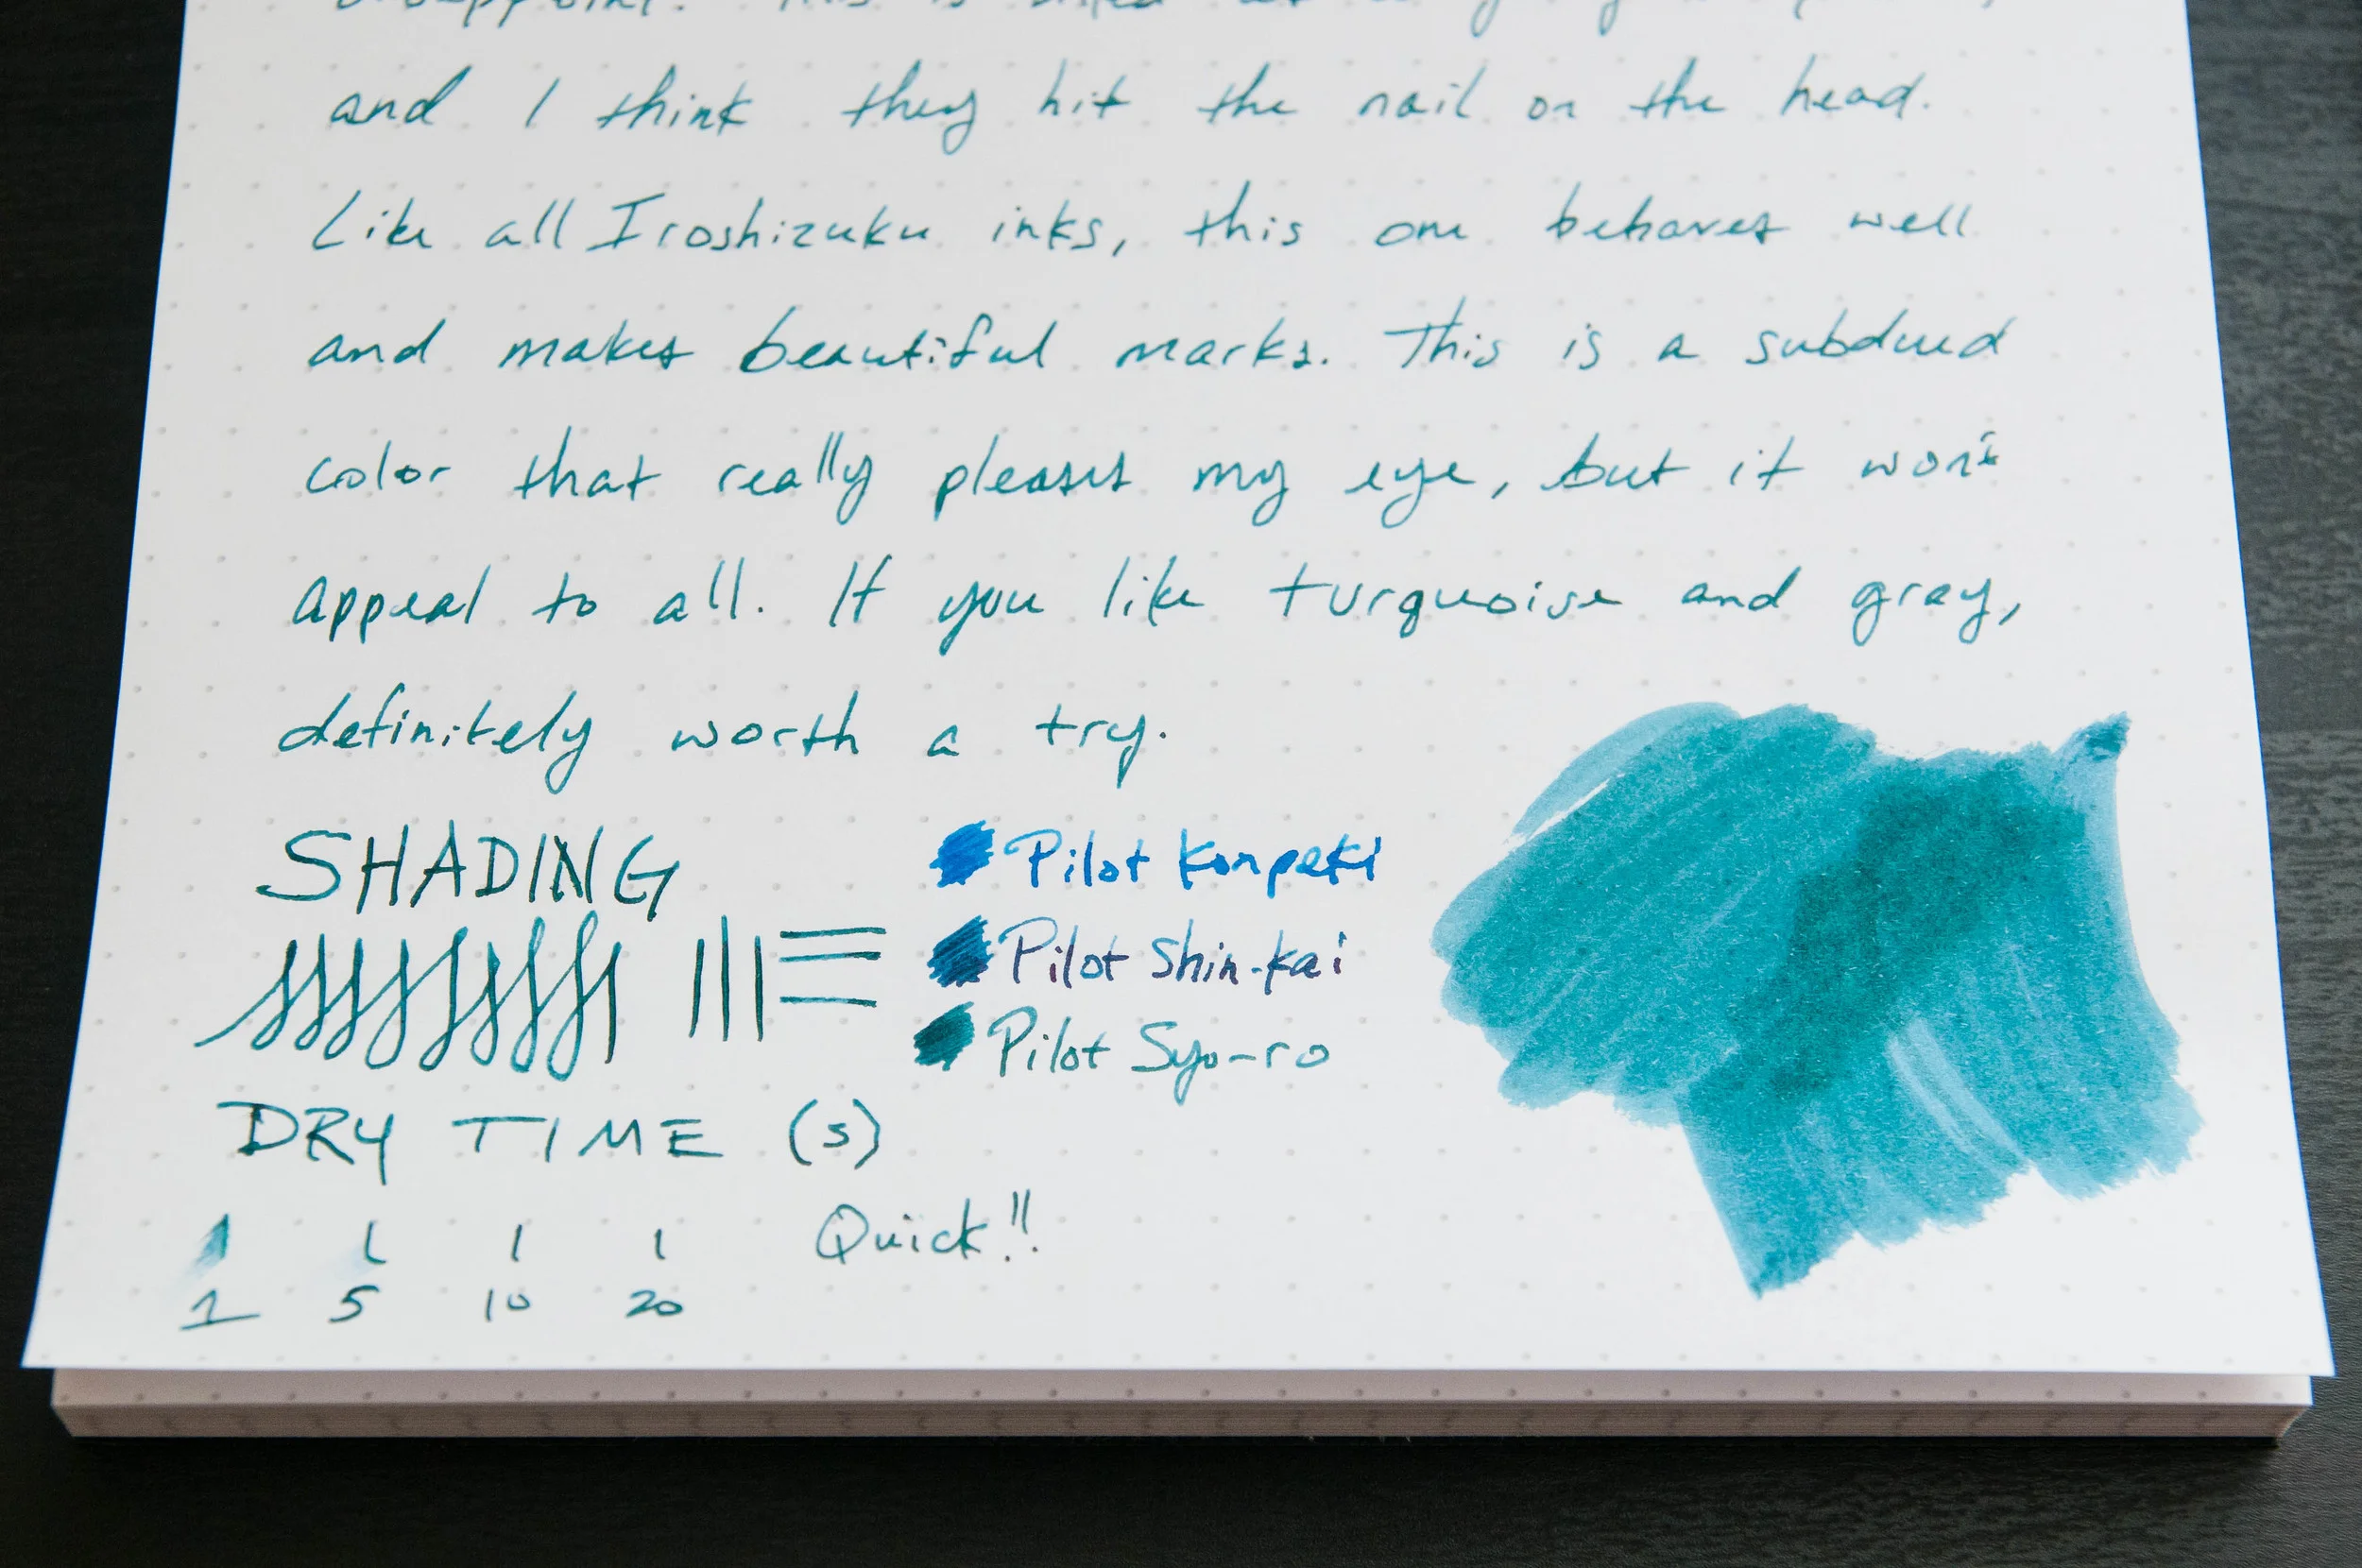 disappoint. This is
and I think they hit the nail on the head.
Like all Iroshizuku inks, this one behaves well
and makes beautiful marks. This is a subdued
color that really pleases my eye, but it won't
appeal to all. If you like turquoise and gray,
definitely worth a try.
SHADING
Pilot Konpeki
Pilot Shin-kai
Pilot Syo-ro
DRY TIME (s)
Quick!!
1 5 10 20